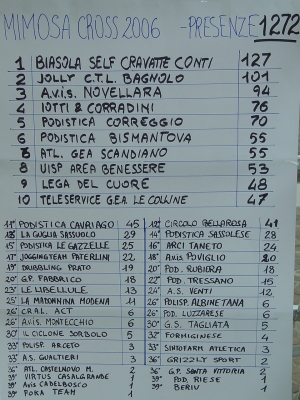 MIMOSA CROSS 2006 -PRESENZE 1272
1 BIASOLA SELF CRAVATTE CONTI 127
2 JOLLY C.T.L. BAGNOLO 101
3 A.V.I.S. NOVELLARA 94
4 IOTTI & CORRADINI 76
5 PODISTICA CORREGGIO 70
6 PODISTICA BISMANTOVA 55
ATL. GEA SCANDIANO 55
8 UISP AREA BENESSERE 53
9 LEGA DEL CUORE 48
10 TELESERVICE GEA LE COLLINE 47
11° PODISTICA CAVRIAGO 45
12° CIRCOLO BELLAROSA 41
LA GUGLIA SASSUOLO 29
14° PODISTICA SASSOLESE 28
15° PODISTICA LE GAZZELLE 25
16° ARCI TANETO 24
17° JOGGINGTEAM PATERLINI 22
18° AVIS POVIGLIO 20
19° DRIBBLING PRATO 19
20° POD. RUBIERA 18
20° GP. FABBRICO 18
22° POD. TRESSANO 15
23° LE LIBELLULE 13
24° A.S. VENTI 12
25° LA MADONNINA MODENA 11
26° POLISP. ALBINETANA 6
26° CRAL ACT 6
26° POD. LUZZARESE 6
26° AVIS. MONTECCHIO 6
30° G.S. TAGLIATA 5
30° IL CICLONE SORBOLO 5
32° FORMIGINESE 4
33° POLISP. ARCETO 3
33° SINTOFARM ATLETICA 3
33° A.S. GUALTIERI 3
36° GRIZZLY SPORT 2
36° ATL. CASTELNOVO M. 2
36° G.P. SANTA VITTORIA 2
39° VIRTUS CASALGRANDE 1
39° POD. RIESE 1
39° AVIS CADELBOSCO 1
39° BERIV 1
39° FOKA TEAM 1